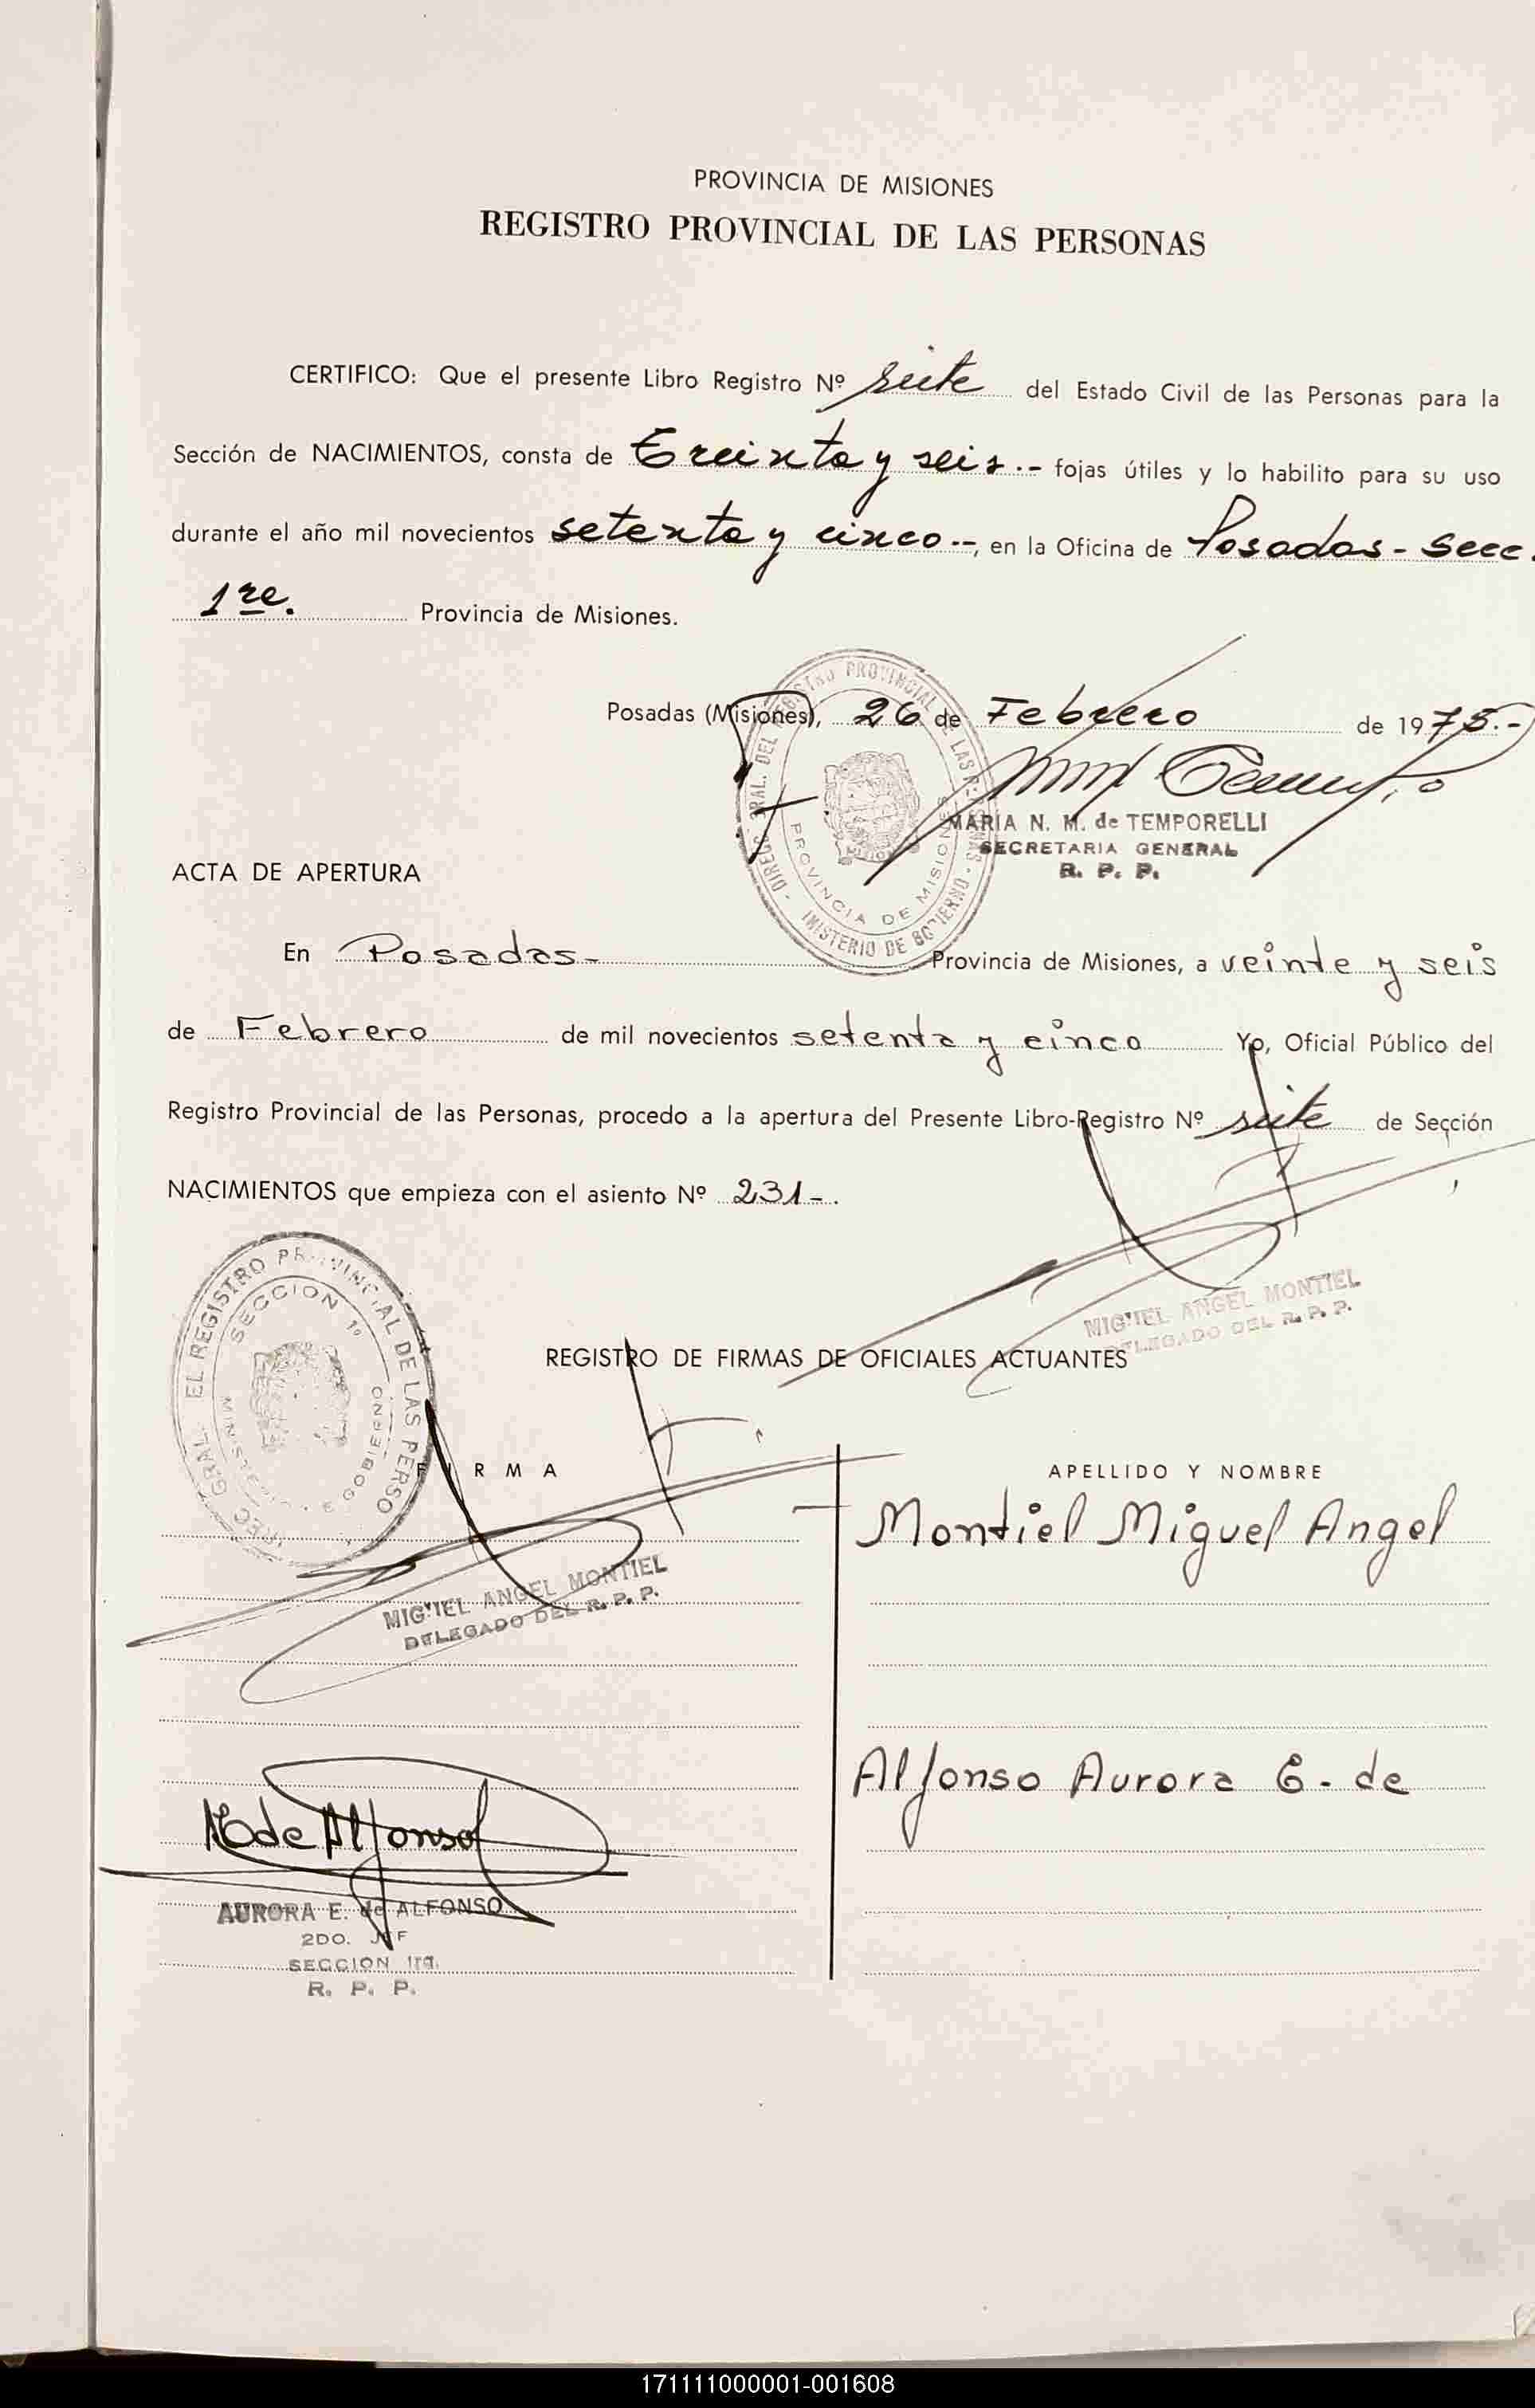 PROVINCIA DE MISIONES
REGISTRO PROVINCIAL DE LAS PERSONAS
CERTIFICO: Que el presente Libro Registro Nº siete del Estado Civil de las Personas para la
Sección de NACIMIENTOS, consta de Treinta y seis.- fojas útiles y lo habilito para su uso
durante el año mil novecientos setenta y cinco.-, en la Oficina de Posadas - Secc.
1ra. Provincia de Misiones.
Posadas (Misiones), 26 de Febrero de 1975.-
MARIA N. M. de TEMPORELLI
SECRETARIA GENERAL
R. P. P.
ACTA DE APERTURA
En Posadas- Provincia de Misiones, a veinte y seis
de Febrero de mil novecientos setenta y cinco Yo, Oficial Público del
Registro Provincial de las Personas, procedo a la apertura del Presente Libro-Registro Nº siete de Sección
NACIMIENTOS que empieza con el asiento Nº 231-.
MIGUEL ANGEL MONTIEL
DELEGADO DEL R. P. P.
REGISTRO DE FIRMAS DE OFICIALES ACTUANTES
FIRMA APELLIDO Y NOMBRE
Montiel Miguel Angel
MIGUEL ANGEL MONTIEL
DELEGADO DEL R. P. P.
Alfonso Aurora E. de
AE de Alfonso
AURORA E. de ALFONSO
2DO. JEF
SECCION 1ra.
R. P. P.
171111000001-001608